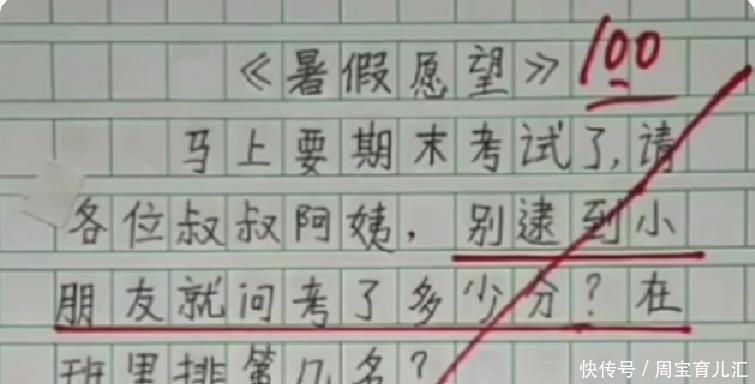 《暑假愿望》 100
马上要期末考试了,请
各位叔叔阿姨,别逮到小
朋友就问考了多少分?在
班里排第几名?
快传号/周宝育儿汇